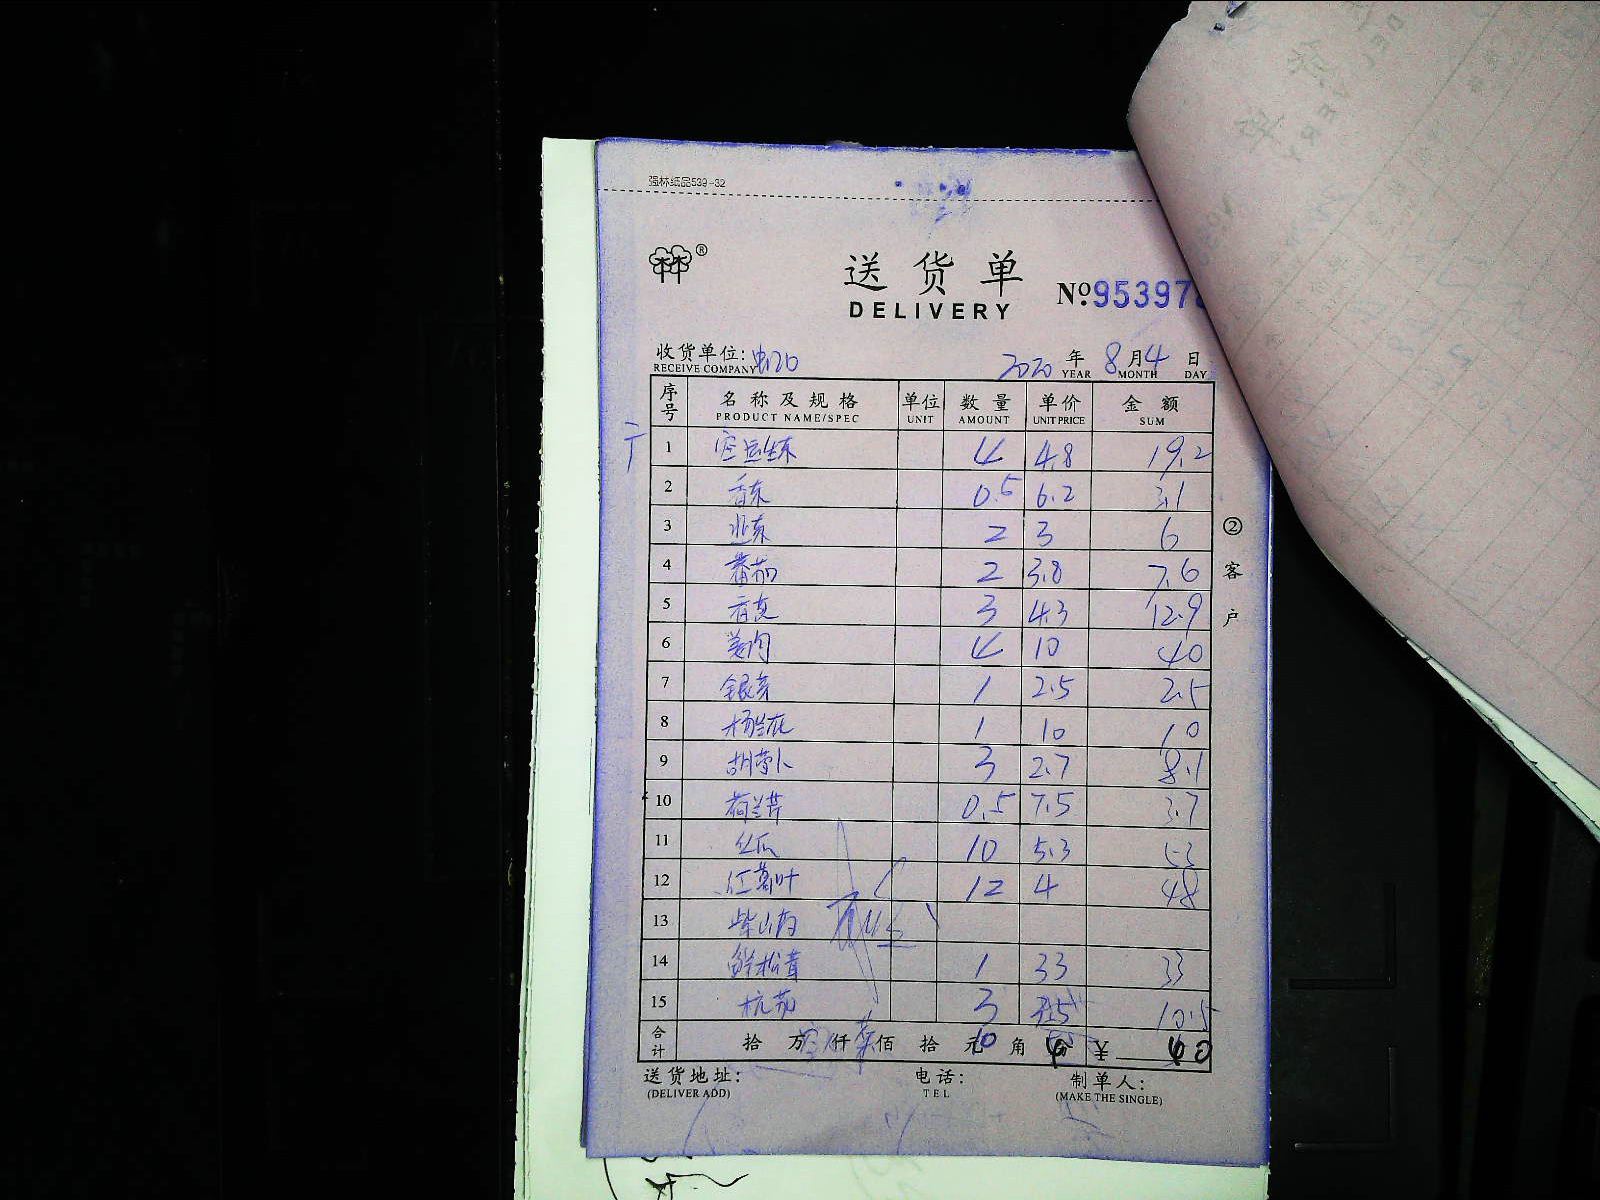 强林纸品539-32
送货单
DELIVERY
Nº.953978
收货单位:
RECEIVE COMPANY
2020 年 8 月 4 日
YEAR MONTH DAY
序号 名称及规格 单位 数量 单价 金额
PRODUCT NAME/SPEC UNIT AMOUNT UNIT PRICE SUM
1 4 4.8 19.2
2 0.5 6.2 3.1
3 2 3 6
4 番茄 2 3.8 7.6
5 3 4.3 12.9
6 姜肉 4 10 40
7 银芽 1 2.5 2.5
8 1 10 10
9 胡萝卜 3 2.7 8.1
10 荷兰芹 0.5 7.5 3.7
11 丝瓜 10 5.3 53
12 红薯叶 12 4 48
13
14 鲜松茸 1 33 33
15 杭茄 3 3.5 10.5
合计 拾 万 仟 佰 拾 元 角 ¥ 40
送货地址: 电话: 制单人:
(DELIVER ADD) TEL (MAKE THE SINGLE)
②客户